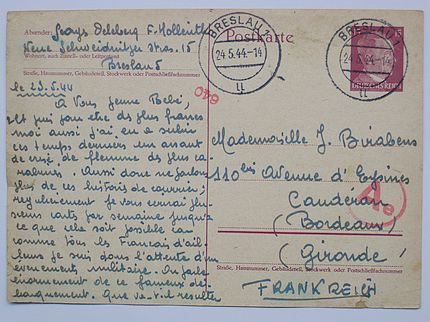 Absender: Georges Delsberg F. Hollerith
Neue Schweidnitzer Stras. 15
Wohnort, auch Zustell- oder Leitpostamt
Breslau 5
Straße, Hausnummer, Gebäudeteil, Stockwerk oder Postschließfachnummer
Postkarte
BRESLAU 1
24.5.44.-14
tt
BRESLAU 1
24.5.44.-14
tt
15
DEUTSCHES REICH
040
le 23.5.44
A vous jeune Bébé,
et puis
moi aussi j'ai eu à subir
ces temps derniers un assaut
de crise de flemme des plus
Aussi donc ne
plus de ces histoires de courrier,
régulièrement je vous envoie
cartes par semaine jusqu'à
ce que cela soit possible car
comme tous les Français d'ail-
leurs je suis dans l'attente d'
évènements militaire. On parle
énormement de ce fameux dé-
barquement. Que va-t-il resulter
Mademoiselle J. Birabens
110 bis Avenue d'Eysines
Cauderan
(Bordeaux)
(Gironde)
Ae
Straße, Hausnummer, Gebäudeteil, Stockwerk oder Postschließfachnummer
FRANKREICH